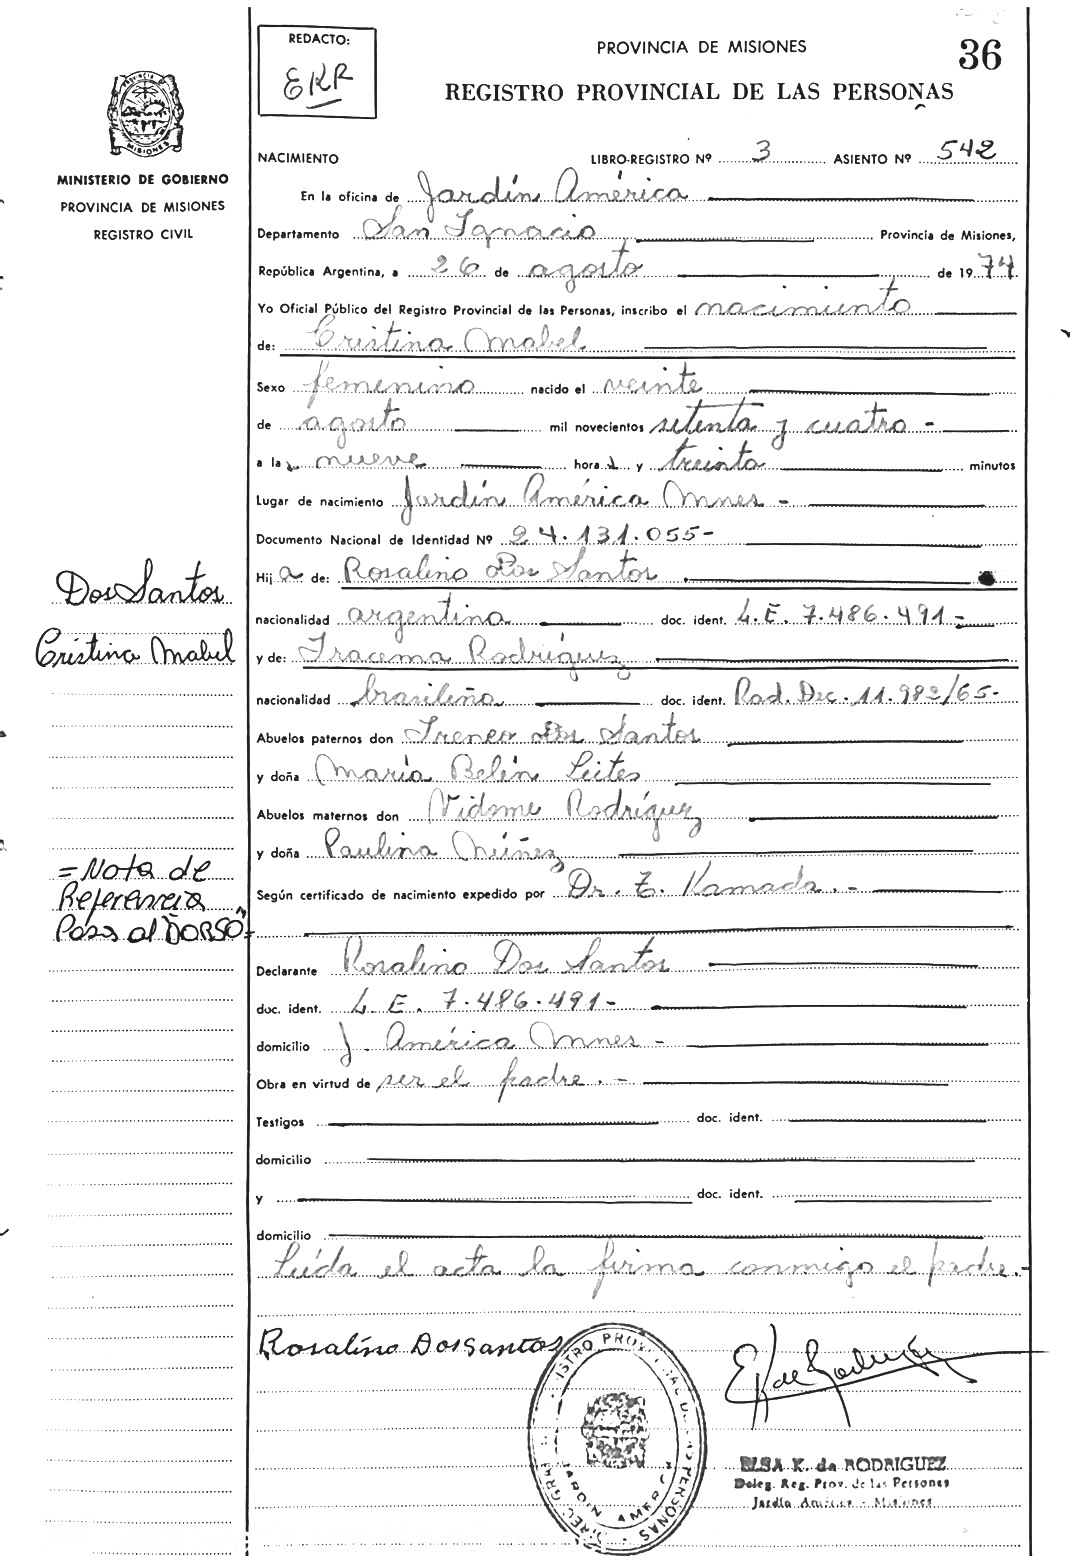 REDACTO:
EKR
PROVINCIA DE MISIONES
36
REGISTRO PROVINCIAL DE LAS PERSONAS
PROVINCIA DE
MISIONES
MINISTERIO DE GOBIERNO
PROVINCIA DE MISIONES
REGISTRO CIVIL
NACIMIENTO LIBRO-REGISTRO Nº 3 ASIENTO Nº 542
En la oficina de Jardín América
Departamento San Ignacio Provincia de Misiones,
República Argentina, a 26 de agosto de 1974
Yo Oficial Público del Registro Provincial de las Personas, inscribo el nacimiento
de: Cristina Mabel
Sexo femenino nacido el veinte
de agosto mil novecientos setenta y cuatro -
a la s nueve hora s y treinta minutos
Lugar de nacimiento Jardín América Mnes -
Documento Nacional de Identidad Nº 24.131.055-
Hij a de: Rosalino Dos Santos
nacionalidad argentina doc. ident. L.E. 7.486.491-
y de: Iracema Rodríguez
nacionalidad brasileña doc. ident. Rad. Dec. 11.982/65-
Abuelos paternos don Ireneo Dos Santos
y doña María Belén Leites
Abuelos maternos don Rodríguez
y doña Paulina Núñez
Según certificado de nacimiento expedido por Dr. Z. Kamada. -
Declarante Rosalino Dos Santos
doc. ident. L.E. 7.486.491-
domicilio J. América Mnes -
Obra en virtud de ser el padre. -
Testigos doc. ident.
domicilio
y doc. ident.
domicilio
Leída el acta la firma conmigo el padre.-
Dos Santos
Cristina Mabel
=Nota de
Referencia
Pasa al "DORSO"=
Rosalino Dos Santos
EK de Rodriguez
JARDIN AMERICA
ELSA K. de RODRIGUEZ
Deleg. Reg. Prov. de las Personas
Jardín América - Misiones